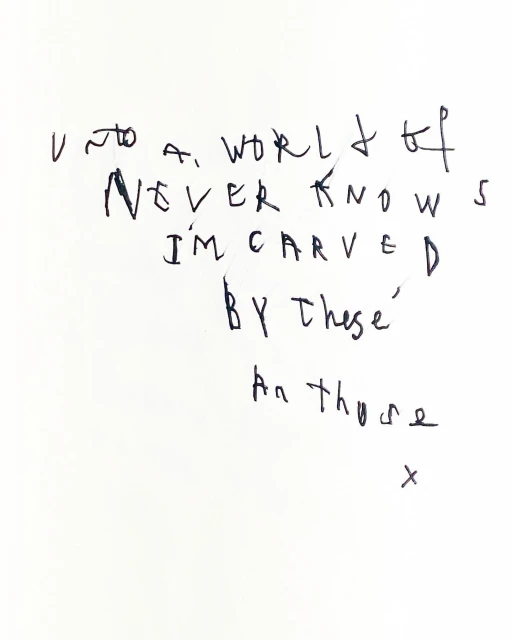 UNTO A. WORLd of
NEVER KNOWS
I'M CARVED
BY These'
An those
x